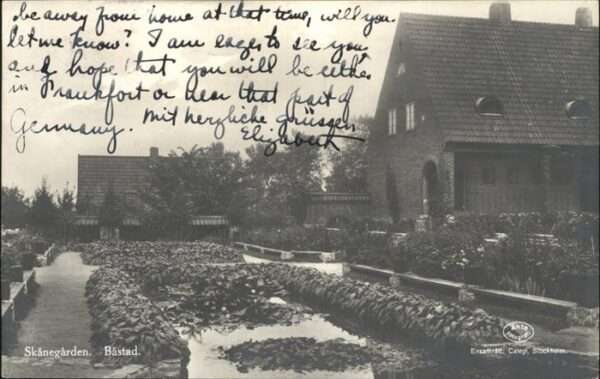 be away from home at that time, will you
let me know? I am eager to see you,
and hope that you will be either
in Frankfort or near that part of
Germany. Mit herzliche grüssen
Elizabeth
Skånegården. Båstad.
Ensamrätt, Calegi, Stockholm.